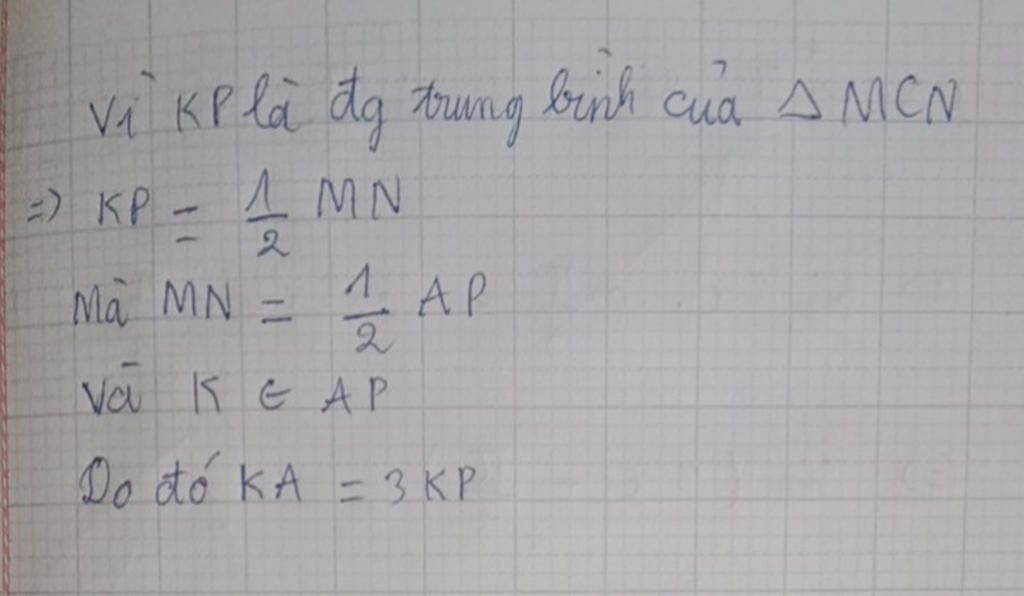 Vì KP là đg trung bình của Δ MCN
=> KP = 1/2 MN
Mà MN = 1/2 AP
Và K ∈ AP
Do đó KA = 3 KP